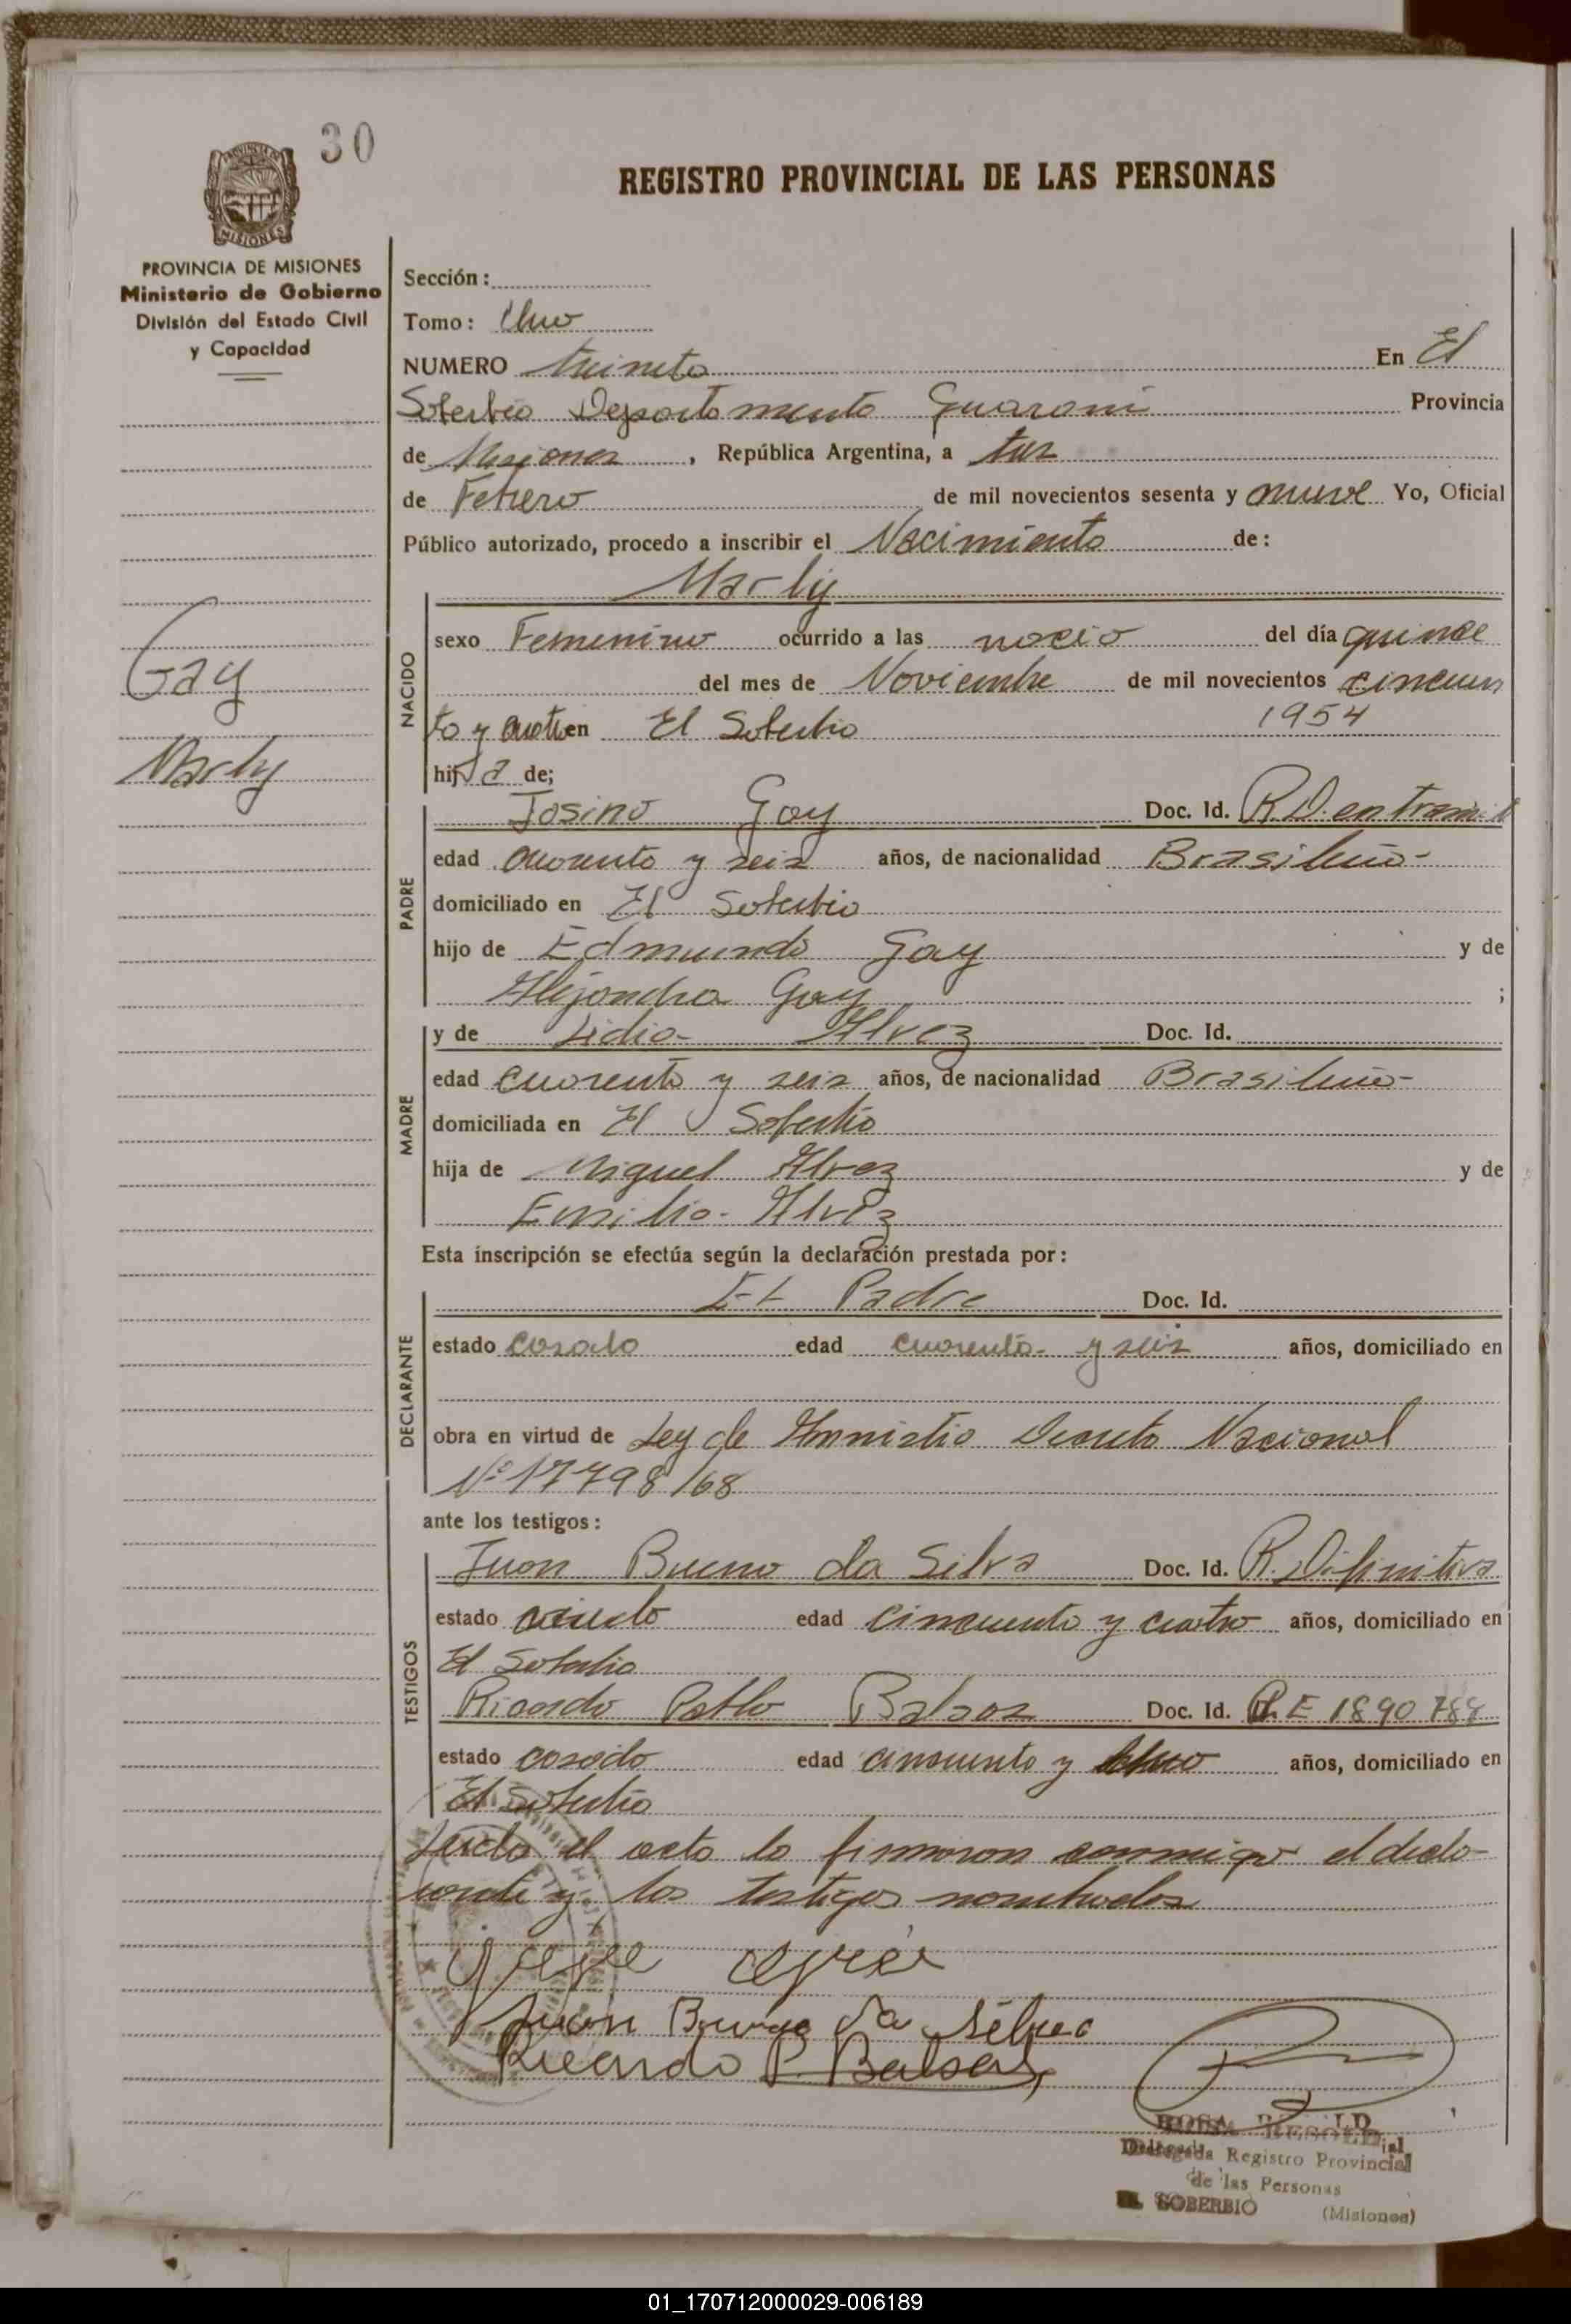 30
REGISTRO PROVINCIAL DE LAS PERSONAS
MISIONES
PROVINCIA DE MISIONES
Ministerio de Gobierno
División del Estado Civil
y Capacidad
Sección:
Tomo: Uno
NUMERO treinta En El
Soberbio Departamento Guarani Provincia
de Misiones, República Argentina, a tres
de Febrero de mil novecientos sesenta y nueve Yo, Oficial
Público autorizado, procedo a inscribir el Nacimiento de:
Marly
NACIDO
sexo Femenino ocurrido a las nacio del día quince
del mes de Noviembre de mil novecientos cincuen
ta y cuatro en El Soberbio 1954
hija de;
Gay
Marly
PADRE
Josino Gay Doc. Id. R.D. en tramite
edad cuarenta y seis años, de nacionalidad Brasileña-
domiciliado en El Soberbio
hijo de Edmundo Gay y de
Alejandra Gay ;
MADRE
y de Lidia- Alvez Doc. Id.
edad cuarenta y seis años, de nacionalidad Brasileña-
domiciliada en El Soberbio
hija de Miguel Alvez y de
Emilia- Alvez
Esta inscripción se efectúa según la declaración prestada por:
DECLARANTE
El Padre Doc. Id.
estado casado edad cuarenta- y seis años, domiciliado en
obra en virtud de Ley de Amnistia Decreto Nacional
Nº 17798/68
ante los testigos:
TESTIGOS
Juan Bueno da Silva Doc. Id. R. Difinitiva
estado viudo edad cincuenta y cuatro años, domiciliado en
El Soberbio
Ricardo Pablo Balsas Doc. Id. E 1890788
estado casado edad cincuenta y años, domiciliado en
El Soberbio
Leida el acta la firmaron conmigo el decla-
rante y los testigos nombrados
Juan Bueno da Silva
Ricardo P. Balsas
ROSA
Delegada Registro Provincial
de las Personas
EL SOBERBIO (Misiones)
01_170712000029-006189